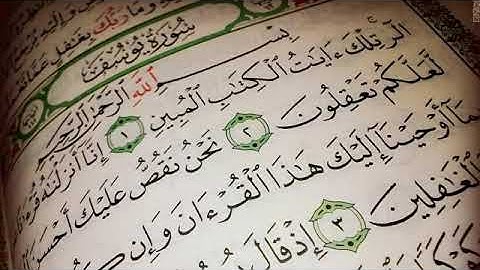 وَمَا رَبُّكَ بِغَٰفِلٍ عَمَّا
سُورَةُ يُوسُفَ
بِسْمِ ٱللَّهِ ٱلرَّحْمَٰنِ ٱلرَّحِيمِ
الٓر تِلْكَ ءَايَٰتُ ٱلْكِتَٰبِ ٱلْمُبِينِ ١ إِنَّآ أَنزَلْنَٰهُ
لَّعَلَّكُمْ تَعْقِلُونَ ٢ نَحْنُ نَقُصُّ عَلَيْكَ أَحْسَنَ
بِمَآ أَوْحَيْنَآ إِلَيْكَ هَٰذَا ٱلْقُرْءَانَ وَإِن
ٱلْغَٰفِلِينَ ٣ إِذْ قَالَ